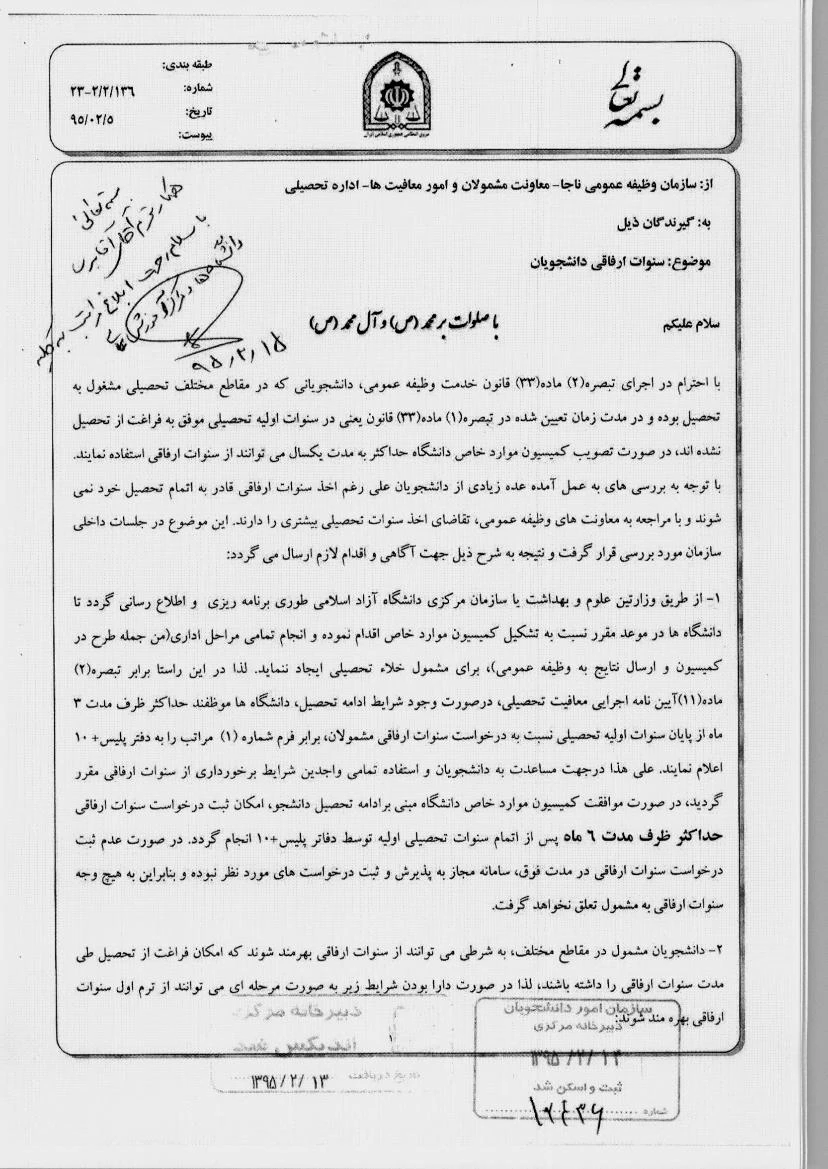 بسمه تعالی
طبقه بندی:
شماره: ۲۳-۲/۲/۱۳۶
تاریخ: ۹۵/۰۲/۵
پیوست:
نیروی انتظامی جمهوری اسلامی ایران
از: سازمان وظیفه عمومی ناجا- معاونت مشمولان و امور معافیت ها- اداره تحصیلی
به: گیرندگان ذیل
موضوع: سنوات ارفاقی دانشجویان
بسمه تعالی
همکار محترم آقای
با سلام جهت ابلاغ مراتب به کلیه
دانشگاه ها و مراکز آموزش عالی
۹۵/۲/۱۵
سلام علیکم
با صلوات بر محمد (ص) و آل محمد (ص)
با احترام در اجرای تبصره(۲) ماده(۳۳) قانون خدمت وظیفه عمومی، دانشجویانی که در مقاطع مختلف تحصیلی مشغول به
تحصیل بوده و در مدت زمان تعیین شده در تبصره(۱) ماده(۳۳) قانون یعنی در سنوات اولیه تحصیلی موفق به فراغت از تحصیل
نشده اند، در صورت تصویب کمیسیون موارد خاص دانشگاه حداکثر به مدت یکسال می توانند از سنوات ارفاقی استفاده نمایند.
با توجه به بررسی های به عمل آمده عده زیادی از دانشجویان علی رغم اخذ سنوات ارفاقی قادر به اتمام تحصیل خود نمی
شوند و با مراجعه به معاونت های وظیفه عمومی، تقاضای اخذ سنوات تحصیلی بیشتری را دارند. این موضوع در جلسات داخلی
سازمان مورد بررسی قرار گرفت و نتیجه به شرح ذیل جهت آگاهی و اقدام لازم ارسال می گردد:
۱- از طریق وزارتین علوم و بهداشت یا سازمان مرکزی دانشگاه آزاد اسلامی طوری برنامه ریزی و اطلاع رسانی گردد تا
دانشگاه ها در موعد مقرر نسبت به تشکیل کمیسیون موارد خاص اقدام نموده و انجام تمامی مراحل اداری(من جمله طرح در
کمیسیون و ارسال نتایج به وظیفه عمومی)، برای مشمول خلاء تحصیلی ایجاد ننماید. لذا در این راستا برابر تبصره(۲)
ماده(۱۱)آیین نامه اجرایی معافیت تحصیلی، درصورت وجود شرایط ادامه تحصیل، دانشگاه ها موظفند حداکثر ظرف مدت ۳
ماه از پایان سنوات اولیه تحصیلی نسبت به درخواست سنوات ارفاقی مشمولان، برابر فرم شماره (۱) مراتب را به دفتر پلیس+ ۱۰
اعلام نمایند. علی هذا درجهت مساعدت به دانشجویان و استفاده تمامی واجدین شرایط برخورداری از سنوات ارفاقی مقرر
گردید، در صورت موافقت کمیسیون موارد خاص دانشگاه مبنی برادامه تحصیل دانشجو، امکان ثبت درخواست سنوات ارفاقی
حداکثر ظرف مدت ۶ ماه پس از اتمام سنوات تحصیلی اولیه توسط دفاتر پلیس+۱۰ انجام گردد. در صورت عدم ثبت
درخواست سنوات ارفاقی در مدت فوق، سامانه مجاز به پذیرش و ثبت درخواست های مورد نظر نبوده و بنابراین به هیچ وجه
سنوات ارفاقی به مشمول تعلق نخواهد گرفت.
۲- دانشجویان مشمول در مقاطع مختلف، به شرطی می توانند از سنوات ارفاقی بهرمند شوند که امکان فراغت از تحصیل طی
مدت سنوات ارفاقی را داشته باشند، لذا در صورت دارا بودن شرایط زیر به صورت مرحله ای می توانند از ترم اول سنوات
ارفاقی بهره مند شوند:
۱
سازمان امور دانشجویان
دبیرخانه مرکزی
۱۳۹۵/۲/۱۴
ثبت و اسکن شد
شماره
دبیرخانه مرکزی
اندیکس شد
تاریخ دریافت
۱۳۹۵/۲/۱۳